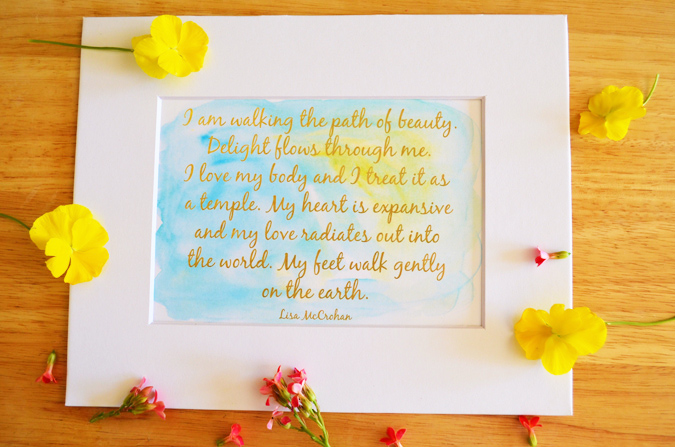 I am walking the path of beauty.
Delight flows through me.
I love my body and I treat it as
a temple. My heart is expansive
and my love radiates out into
the world. My feet walk gently
on the earth.
Lisa McCrohan